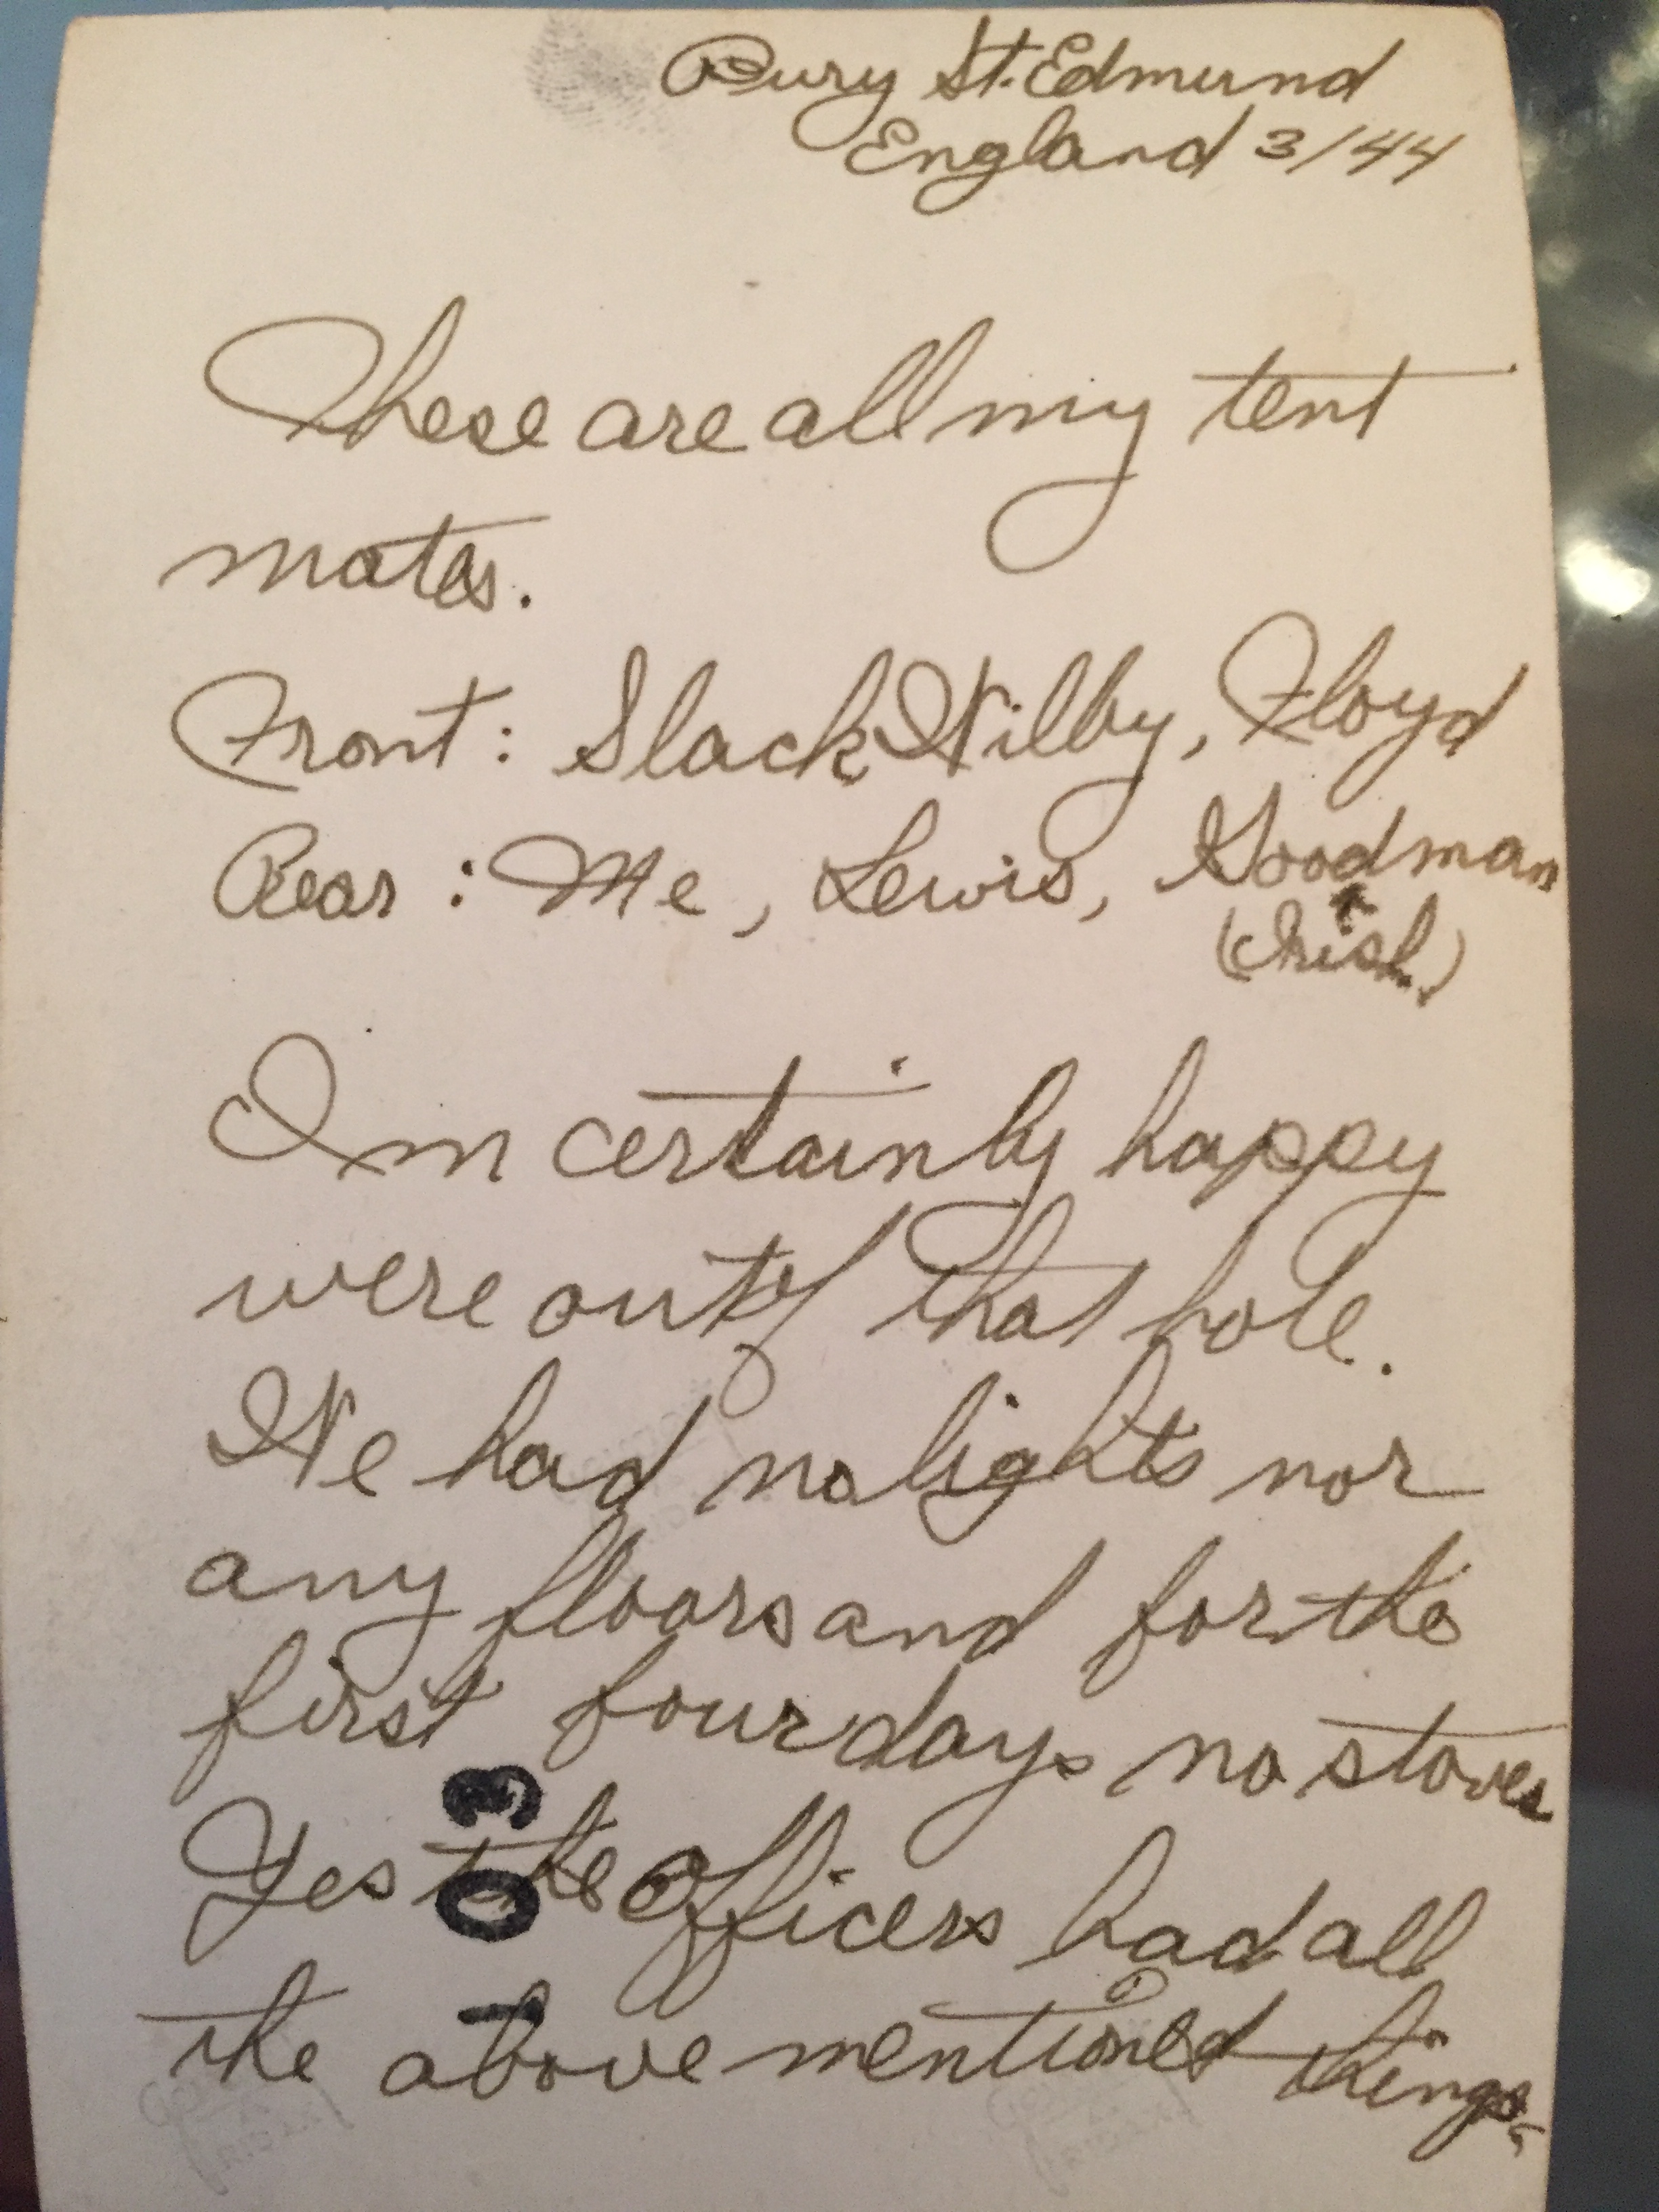 Bury St. Edmund
England 3/44
These are all my tent
mates.
Front: Slack Wilby, Floyd
Rear: Me, Lewis, Goodman
(Irish)
Im certainly happy
were out of that hole.
We had no lights nor
any floors and for the
first four days no stoves
Yes the officers had all
the above mentioned things.
103